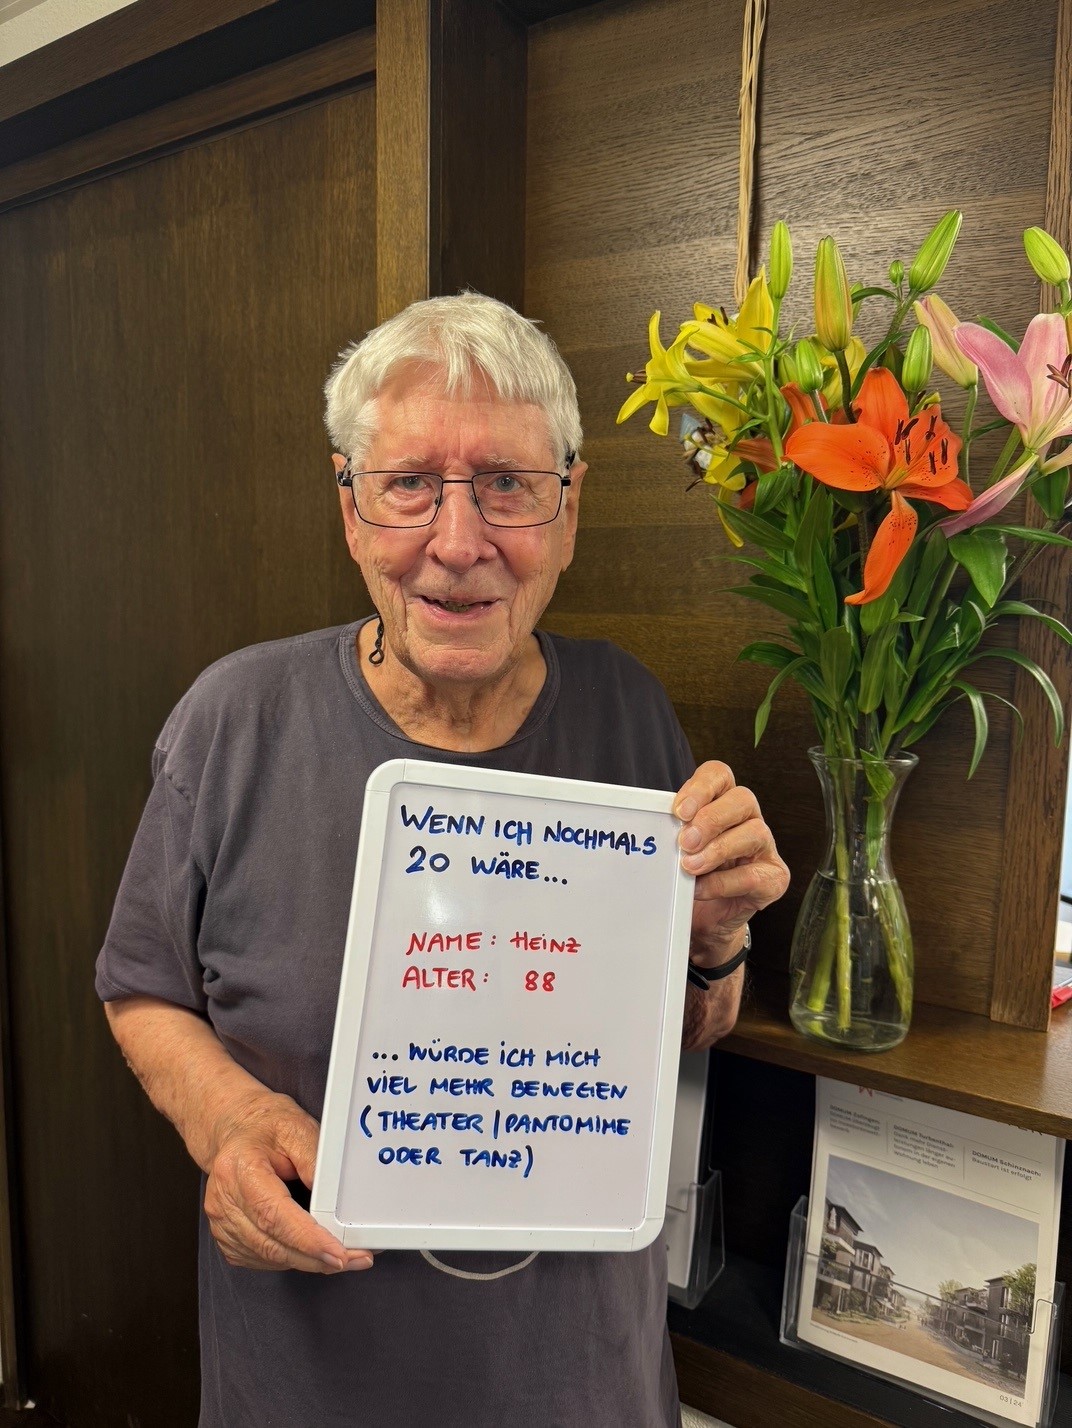 WENN ICH NOCHMALS
20 WÄRE...
NAME: HEINZ
ALTER: 88
... WÜRDE ICH MICH
VIEL MEHR BEWEGEN
(THEATER/PANTOMIME
ODER TANZ)
DOMUM Schinznach:
Baustart ist erfolgt
03|24